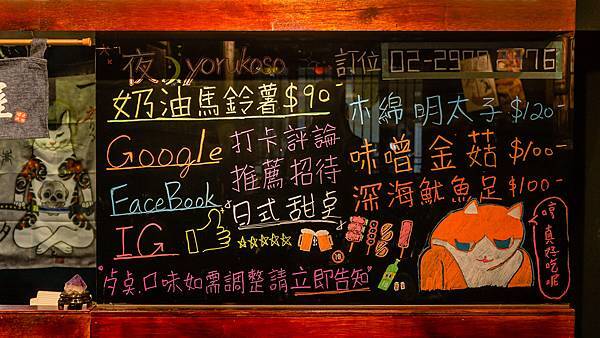 夜 yorukoso
訂位 02-2970 2576
奶油馬鈴薯$90-
木綿明太子$120-
味噌金菇$100-
深海魷魚足$100-
Google
FaceBook
IG
打卡.評論
推薦招待
日式甜桌
口味如需調整請立即告知"
哼真好吃呢